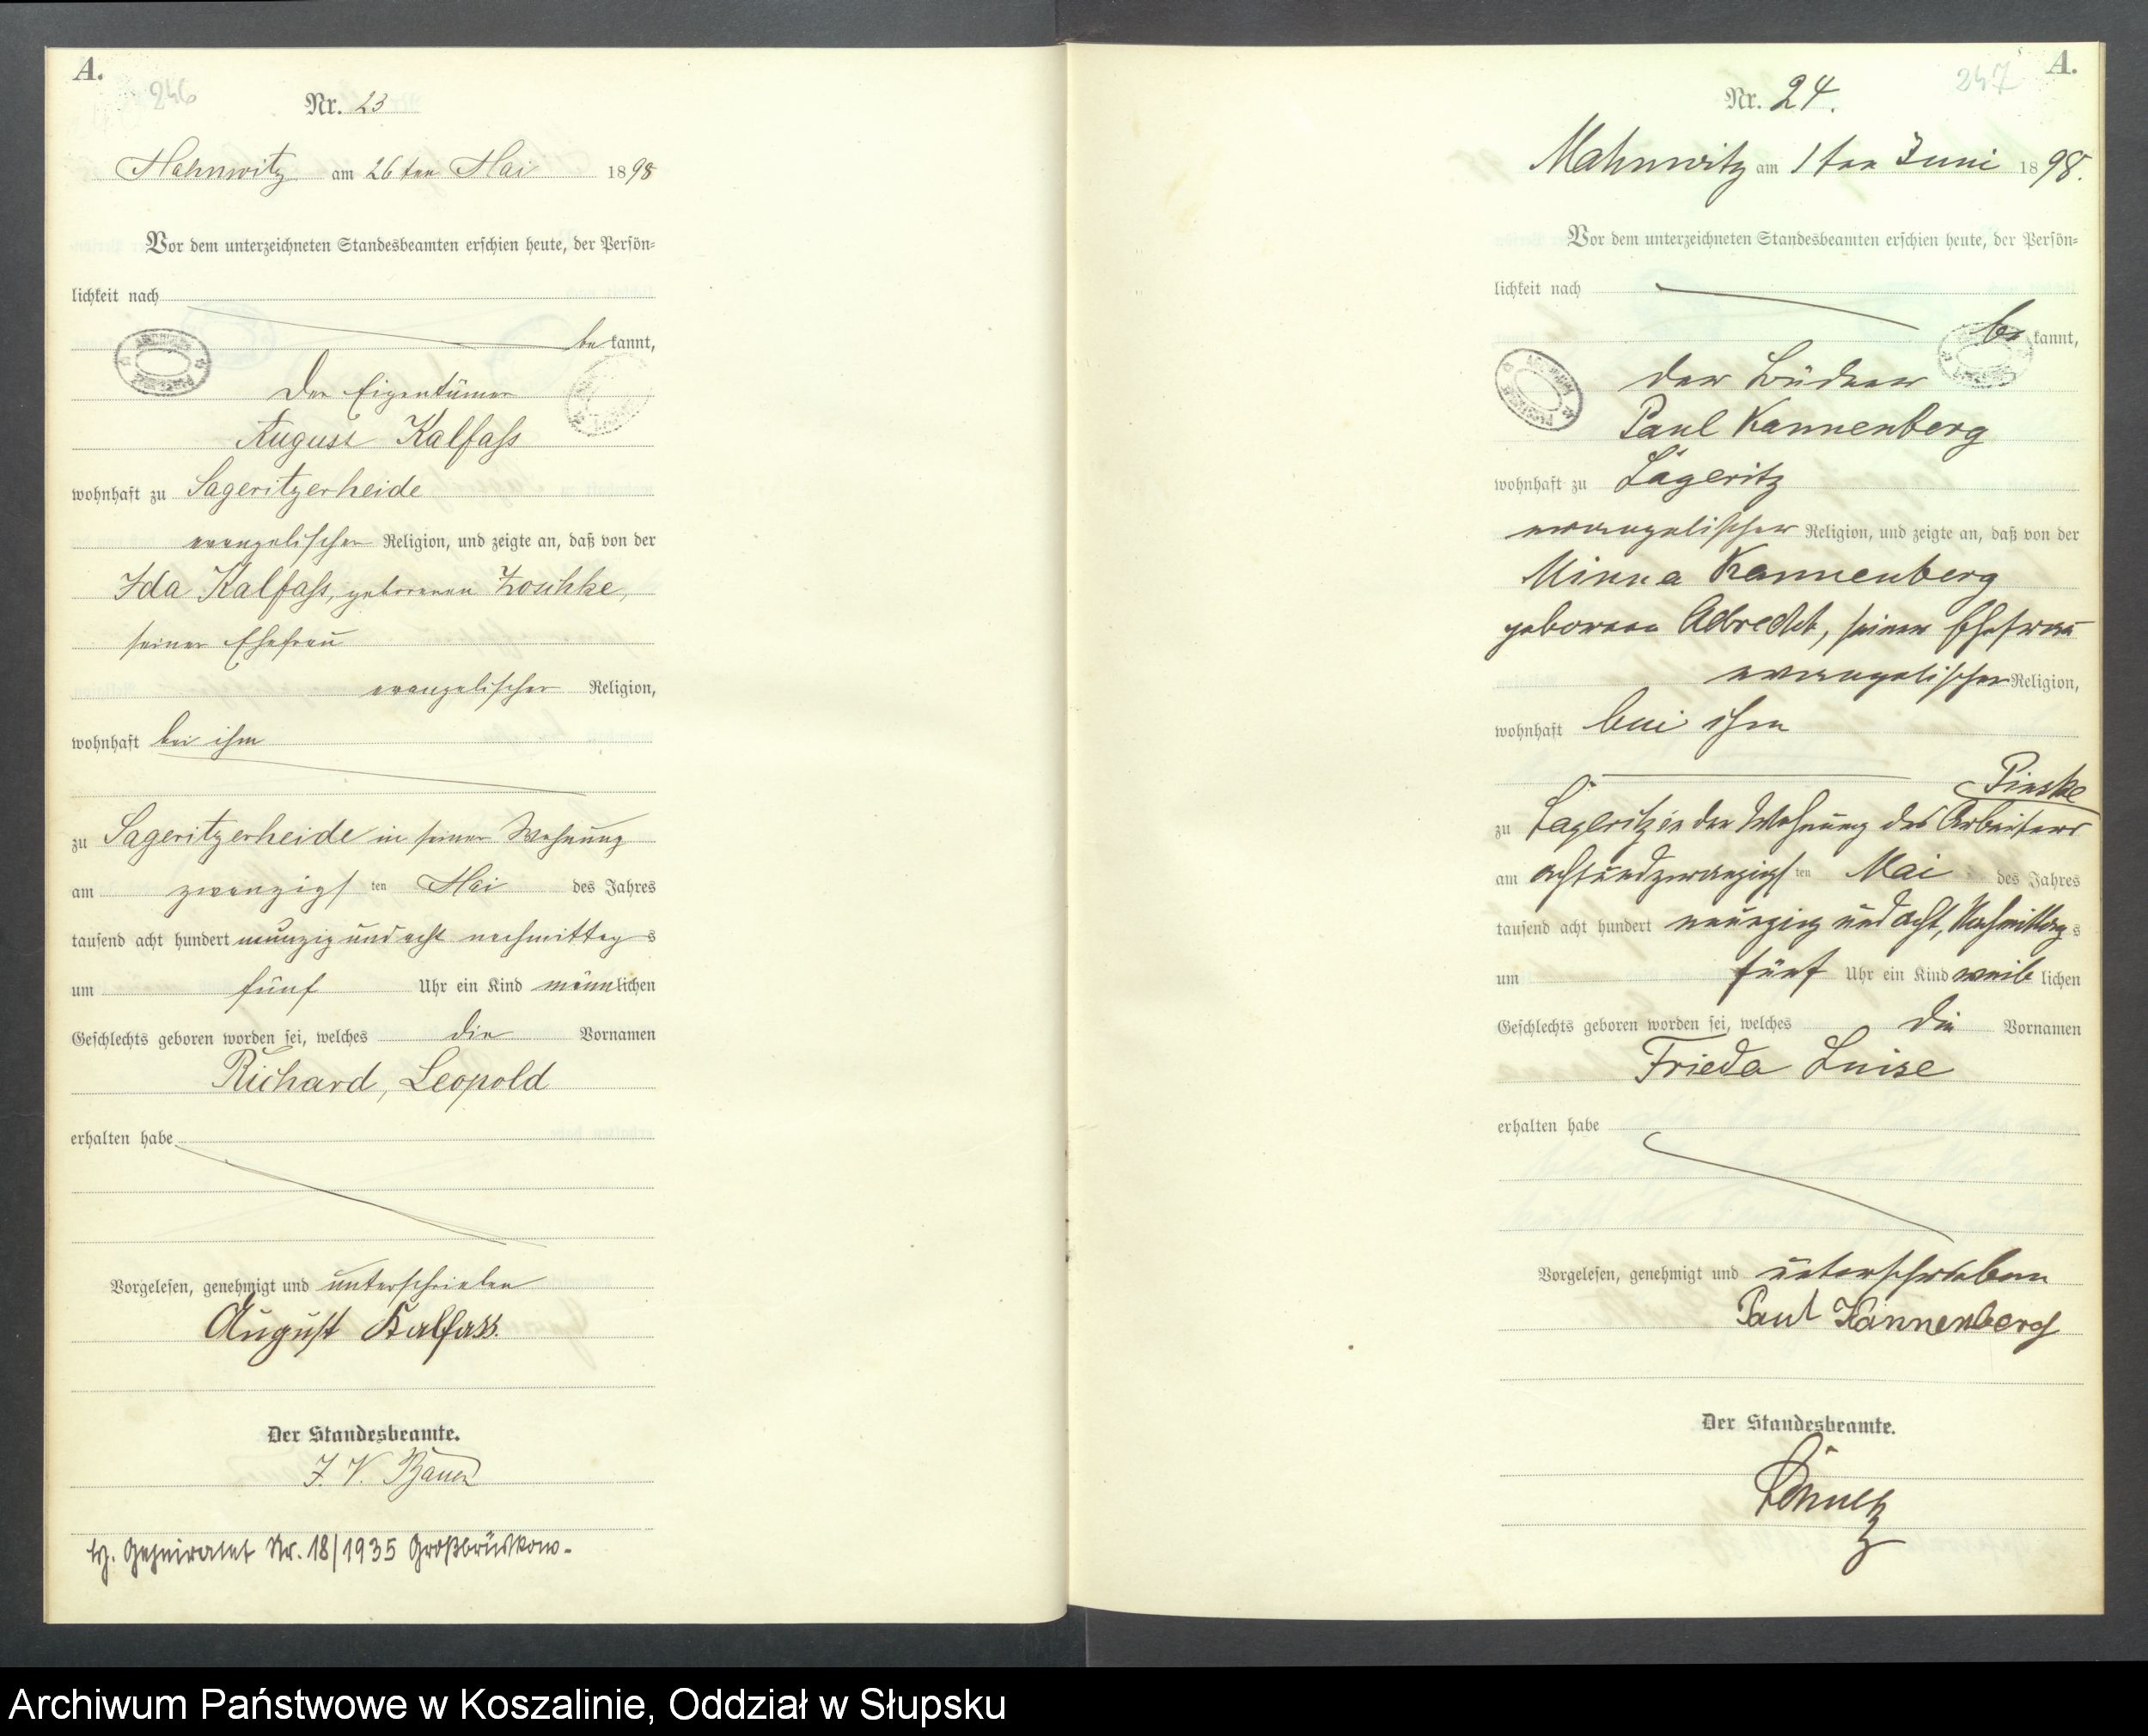 A.
246
Nr. 23
Mahnwitz am 26ten Mai 1898
Vor dem unterzeichneten Standesbeamten erschien heute, der Persön=
lichkeit nach
be kannt,
der Eigentümer
August Kalfass
wohnhaft zu Sageritzerheide
evangelischer Religion, und zeigte an, daß von der
Ida Kalfass, geborenen Zoschke,
seiner Ehefrau
evangelischer Religion,
wohnhaft bei ihm
zu Sageritzerheide in seiner Wohnung
am zwanzigsten Mai des Jahres
tausend acht hundert neunzig und acht nachmittags
um fünf Uhr ein Kind männlichen
Geschlechts geboren worden sei, welches die Vornamen
Richard, Leopold
erhalten habe
Vorgelesen, genehmigt und unterschrieben
August Kalfass.
Der Standesbeamte.
J. V. Bauer
Nr. 18/1935 Großbrüskow.
A.
247
Nr. 24.
Mahnwitz am 1ten Juni 1898.
Vor dem unterzeichneten Standesbeamten erschien heute, der Persön=
lichkeit nach
be kannt,
der Büdner
Paul Kannenberg
wohnhaft zu Lageritz
evangelischer Religion, und zeigte an, daß von der
Minna Kannenberg
geborene seiner Ehefrau
evangelischer Religion,
wohnhaft bei ihm
Pinske
zu Lageritz in der Wohnung des Arbeiters
am achtundzwanzigsten Mai des Jahres
tausend acht hundert neunzig und acht, Nachmittags
um fünf Uhr ein Kind weiblichen
Geschlechts geboren worden sei, welches die Vornamen
Frieda Luise
erhalten habe
Vorgelesen, genehmigt und unterschrieben
Paul Kannenberg
Der Standesbeamte.
Archiwum Państwowe w Koszalinie, Oddział w Słupsku